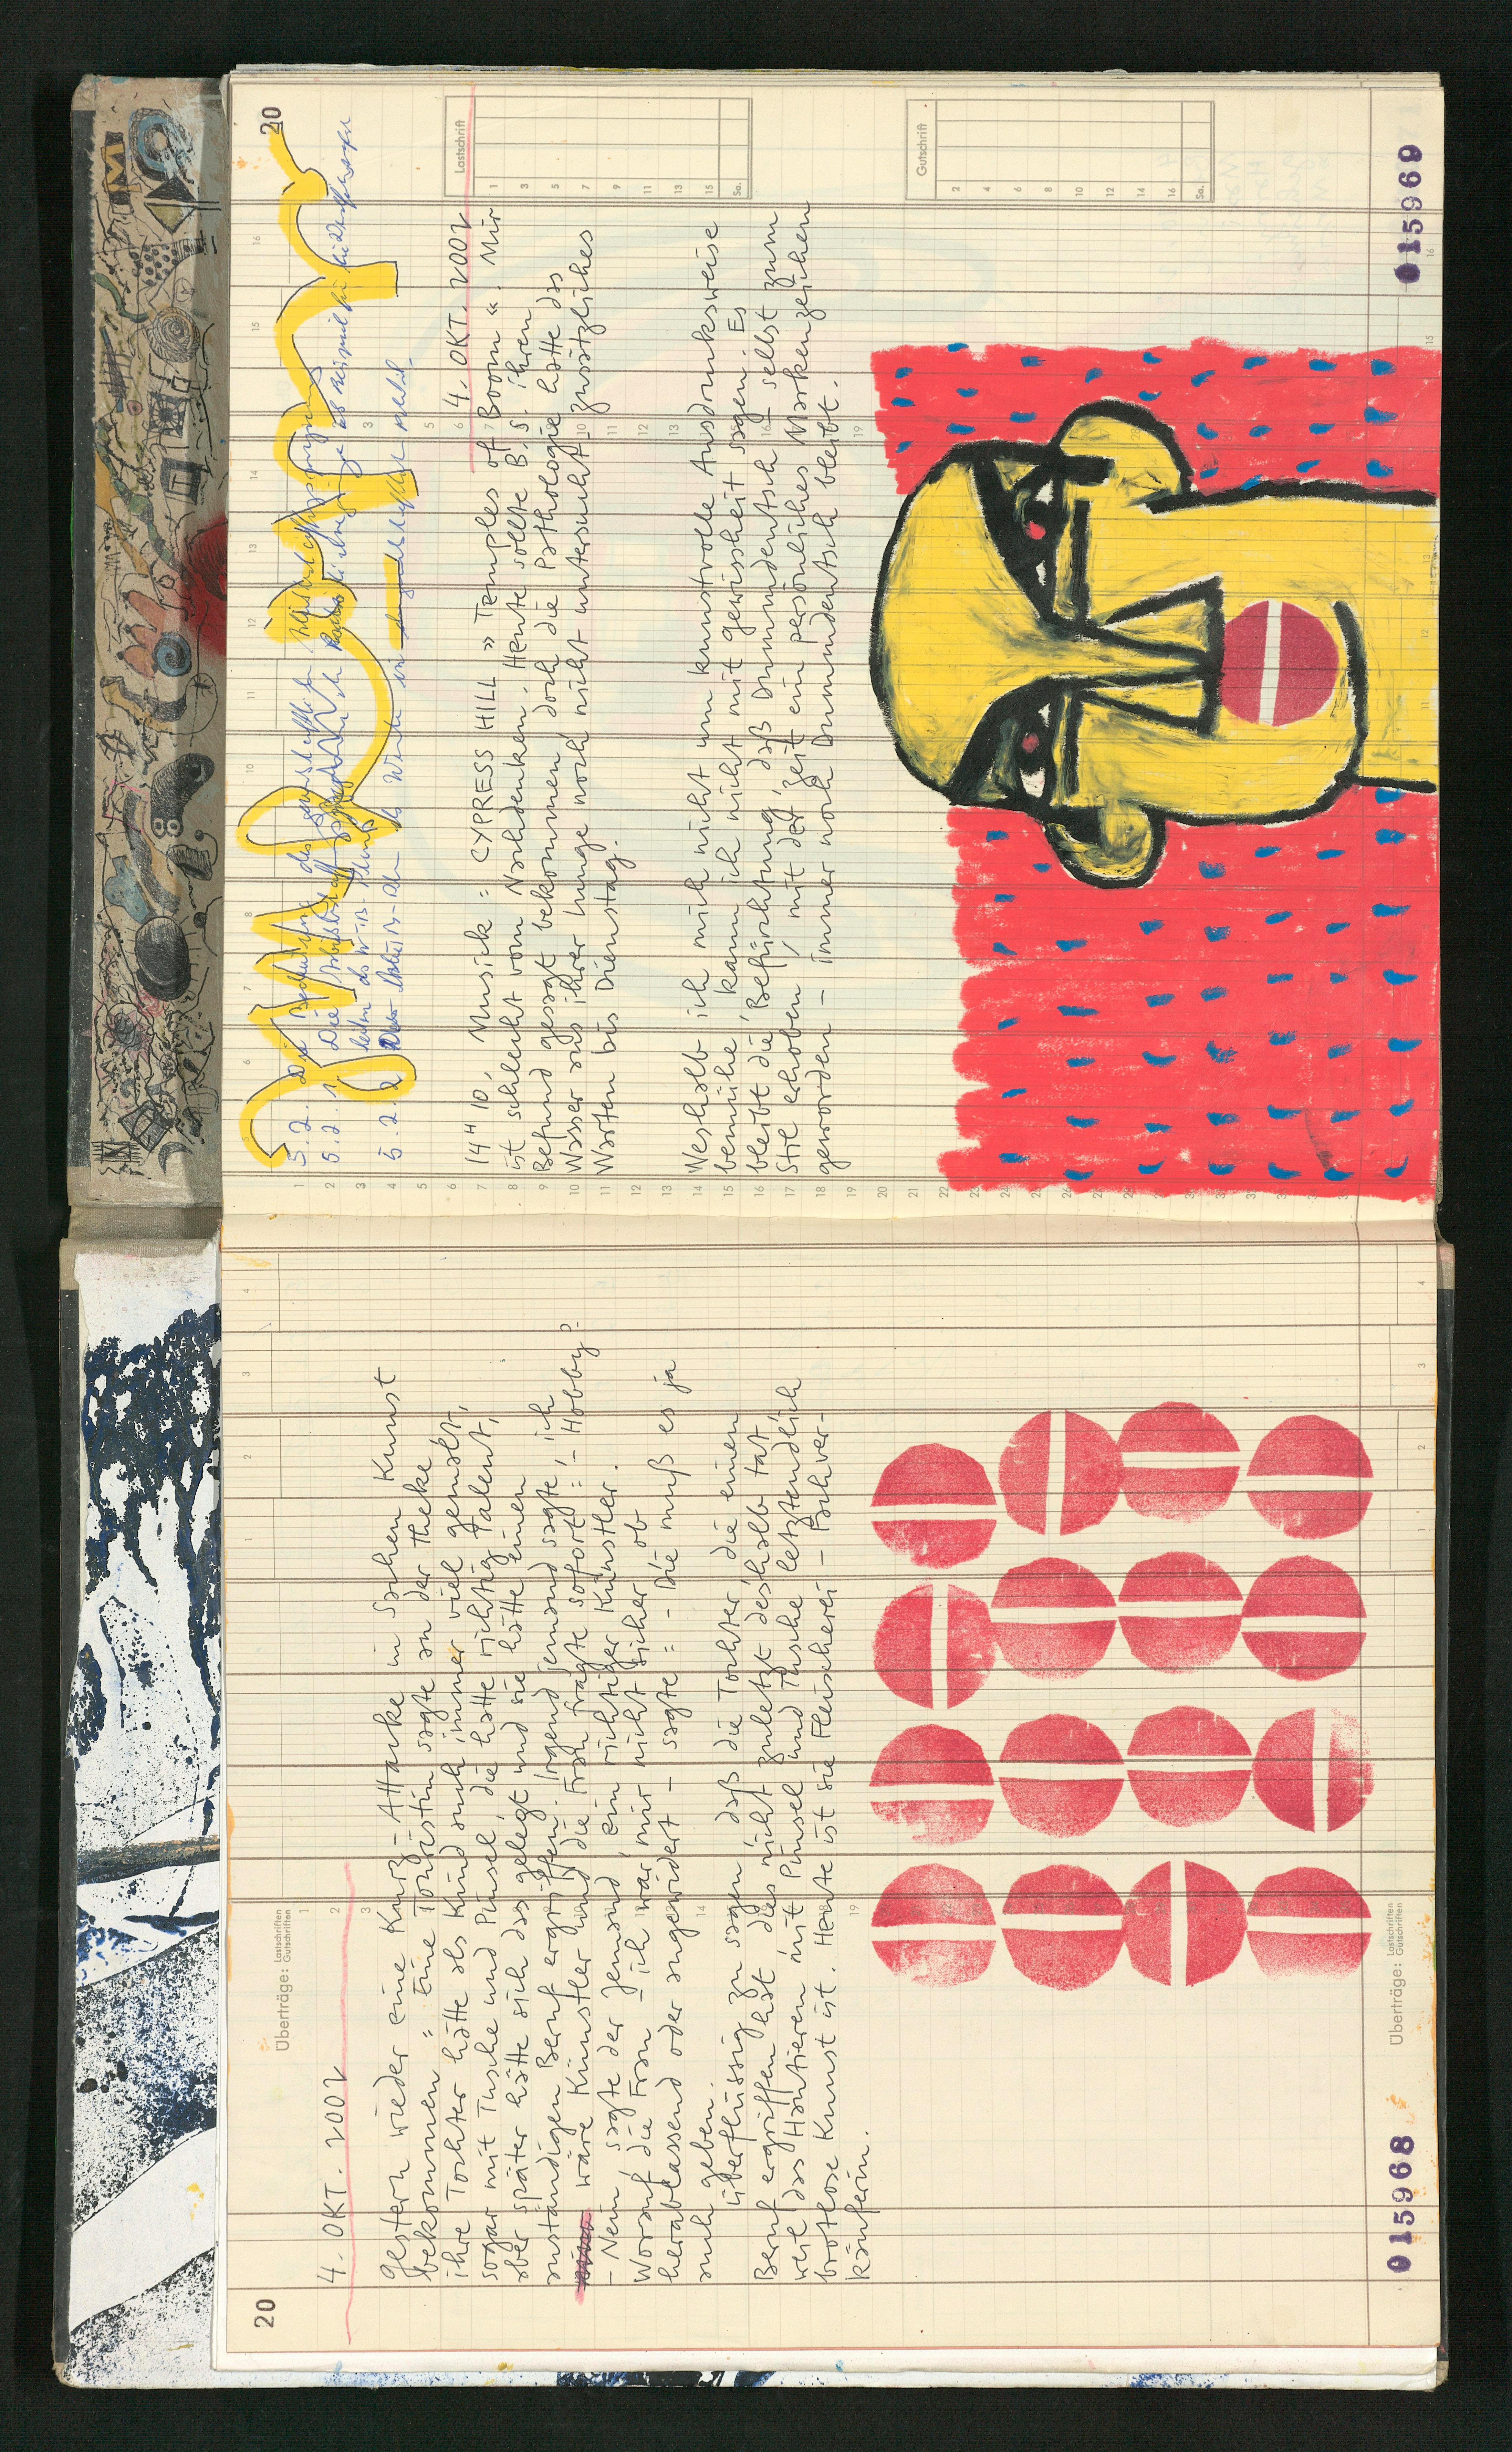 20
Überträge: Lastschriften
Gutschriften
4. OKT. 2002
Gestern wieder eine Kurz-Attacke in Sachen Kunst
bekommen: Eine Touristin sagte an der Theke
ihre Tochter hätte als Kind auch immer viel gemalt,
sogar mit Tusche und Pinsel, die hätte richtig Talent,
aber später hätte sich das gelegt und sie hätte einen
anständigen Beruf ergriffen. Irgend jemand sagte, ich
wäre Künstler und die Frau fragte sofort: - Hobby?
- Nein, sagte der Jemand, ein richtiger Künstler.
Worauf die Frau - ich war mir nicht sicher ob
herablassend oder angewidert - sagte: - Die muß es ja
auch geben.
Überflüssig zu sagen, daß die Tochter die einen
Beruf ergriffen hat dies nicht zuletzt deshalb tat,
weil das Hantieren mit Pinsel und Tusche letztendlich
brotlose Kunst ist. Heute ist sie Fleischerei-Fachver-
käuferin.
Überträge: Lastschriften
Gutschriften
015968
20
5.2. Die Bedeutung des
5.2.1 Die
5.2.2
Lastschrift
Gutschrift
4. OKT. 2002
14H 10, Musick: CYPRESS HILL »Temples of Boom«. Mir
ist schlecht vom Nachdenken. Heute sollte B.S. ihren
Befund gesagt bekommen, doch die Pathologie hatte das
Wasser aus ihrer Lunge noch nicht untersucht. zusätzliches
Warten bis Dienstag.
Weshalb ich mich nicht um kunstvolle Ausdrucksweise
bemühe, kann ich nicht mit gewissheit sagen. Es
bleibt die Befürchtung, daß Dummdeutsch - selbst zum
Stil erhoben, mit der Zeit ein persönliches Markenzeichen
geworden - immer noch Dummdeutsch bleibt.
015969